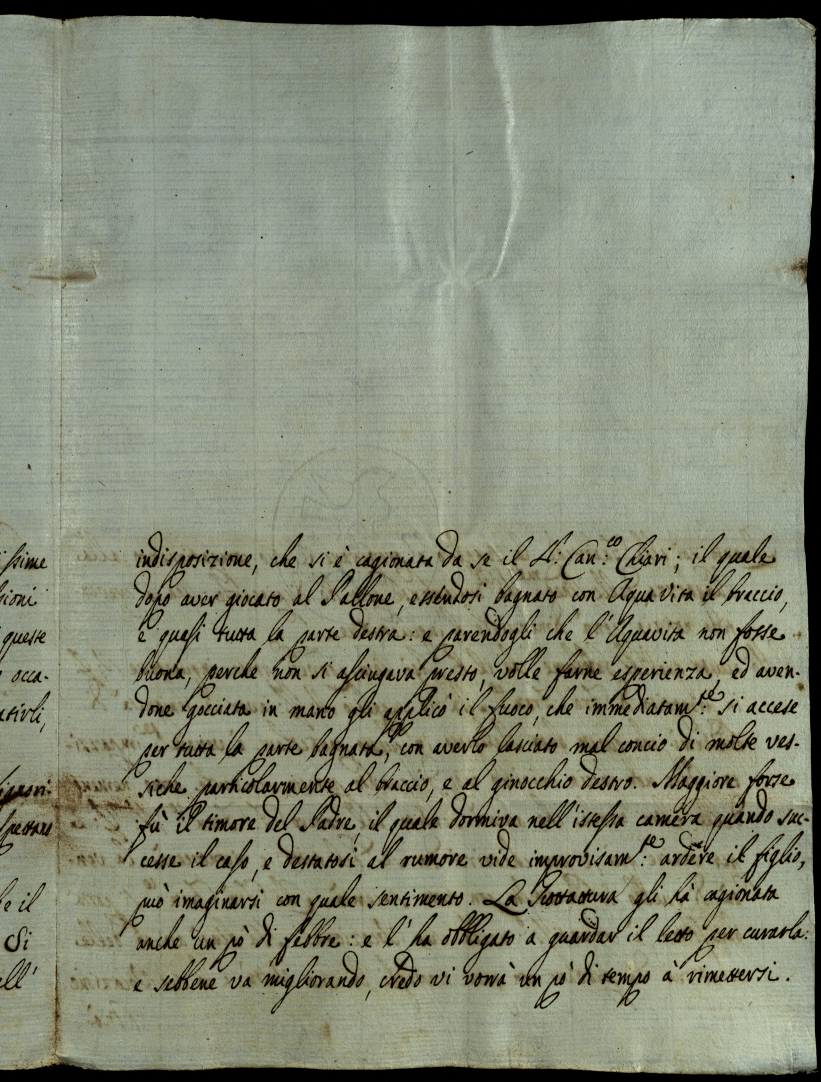 ssime
sioni
queste
occa-
atirli,
spettare
he il
Si
ell'
indisposizione, che si è cagionata da se il Sr: Can:co Chiari; il quale
dopo aver giocato al Pallone, essendosi bagnato con Aquavita il braccio,
e quasi tutta la parte destra: e parendogli che l'Aquavita non fosse
buona, perche non si asciugava presto, volle farne esperienza, ed aven-
done gocciata in mano gli applicò il fuoco, che immediatam:te si accese
per tutta la parte bagnata, con averlo lasciato mal concio di molte ves-
siche particolarmente al braccio, e al ginocchio destro. Maggiore forse
fù il timore del Padre, il quale dormiva nell'istessa camera quando suc-
cesse il caso, e destatosi al rumore vide improvisam:te ardere il figlio,
può imaginarsi con quale sentimento. La Scottatura gli hà cagionata
anche un pò di febbre: e l'ha obbligato a guardar il letto per curarla:
e sebbene va migliorando, credo vi vorrà un pò di tempo à rimettersi.